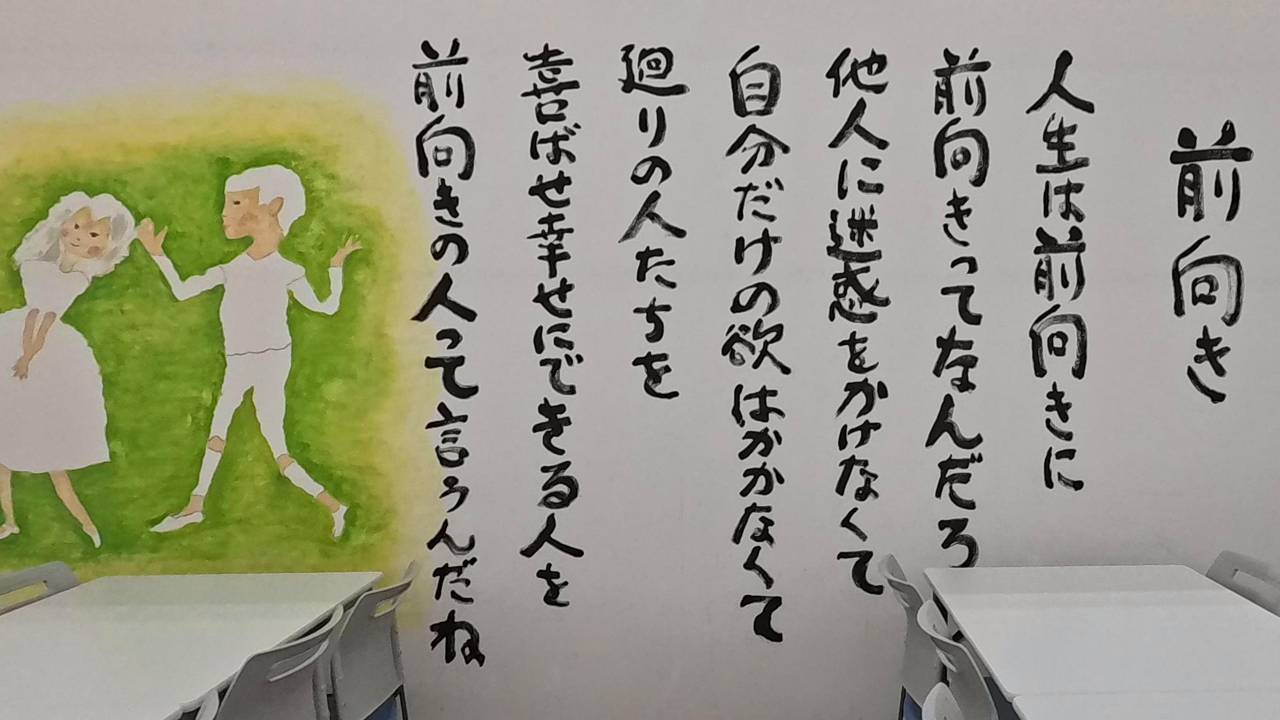 前向き
人生は前向きに
前向きってなんだろ
他人に迷惑をかけなくて
自分だけの欲はかかなくて
廻りの人たちを
喜ばせ幸せにできる人を
前向きの人って言うんだね